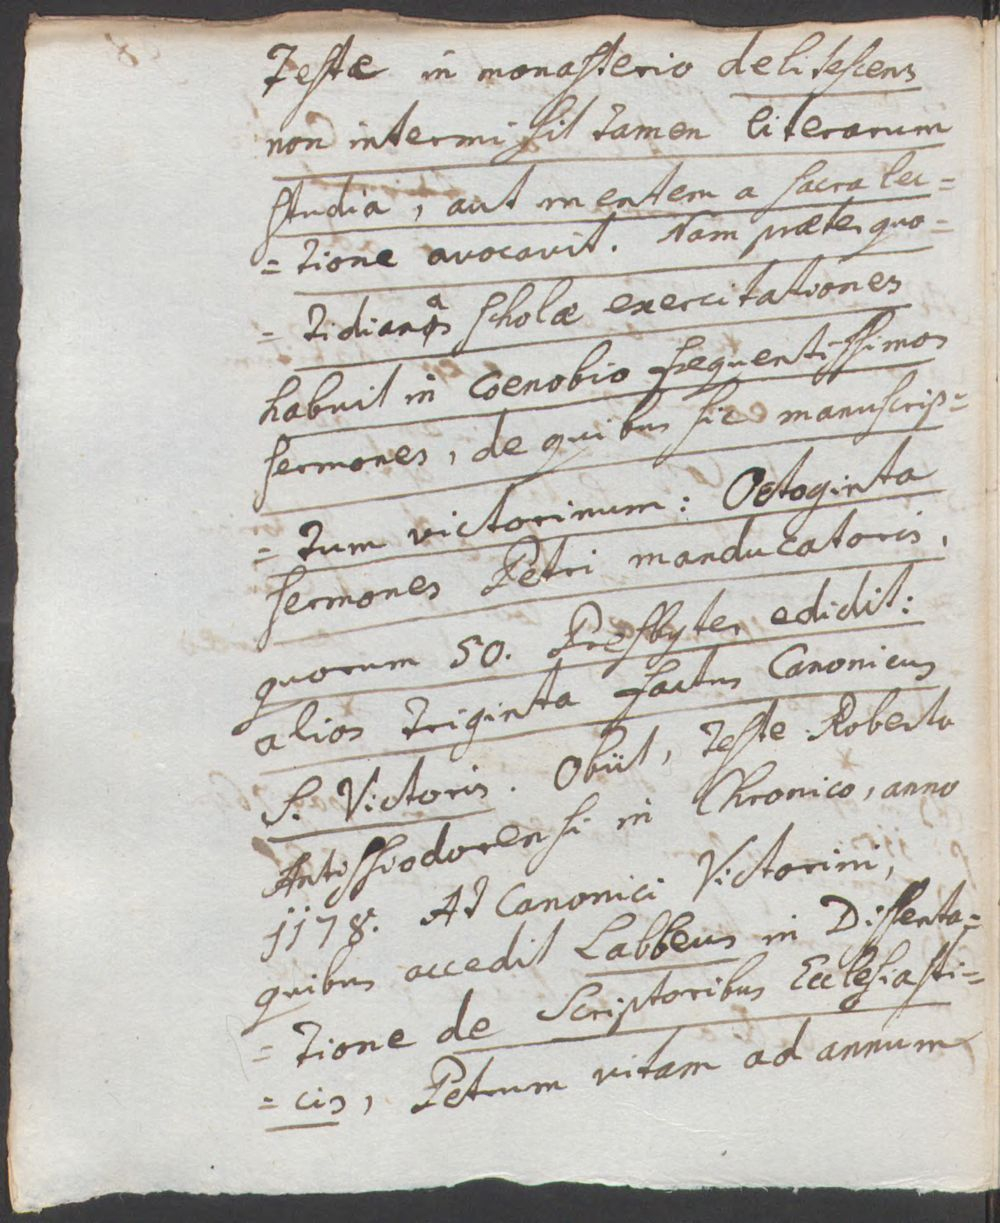 Testæ in monasterio delitescens
non intermisit tamen literarum
studia, aut mentem a sacra lec=
=tione avocavit. Nam præter quo=
=tidianas scholæ exercitationes
habuit in Coenobio frequentissimos
sermones, de quibus sic manuscrip=
=tum victorinum: Octoginta
sermones Petri manducatoris,
quorum 50. Presbyter edidit:
alios triginta factus Canonicus
S. Victoris. Obiit, teste Roberto
Antissiodorensi in Chronico, anno
1178. At Canonici Victorini,
quibus accedit Labbeus in Disserta=
=tione de Scriptoribus Ecclesiasti=
=cis, Petrum vitam ad annum